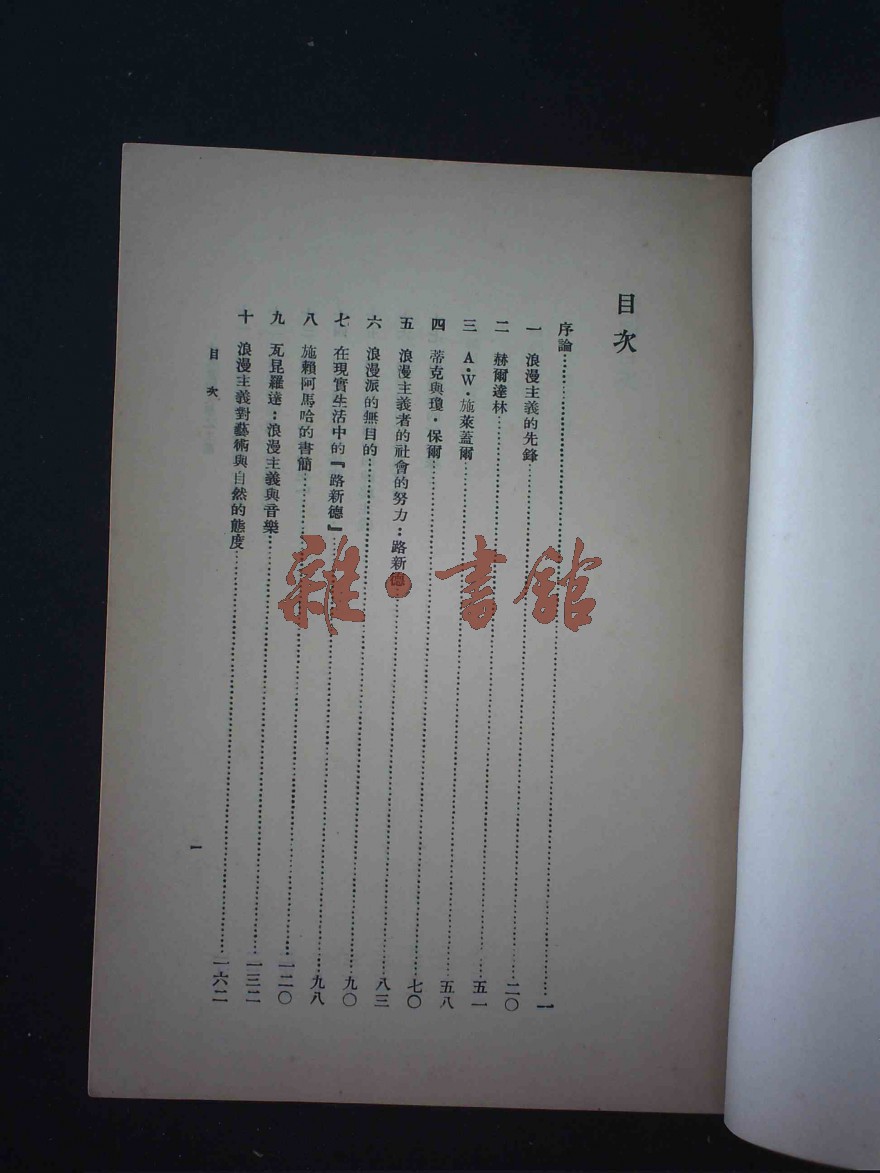 目次
序論……一
一 浪漫主義的先鋒……二〇
二 赫爾達林……五一
三 A·W·施萊蓋爾……五八
四 蒂克與瓊·保爾……七〇
五 浪漫主義者的社會的努力：路新德……八三
六 浪漫派的無目的……九〇
七 在現實生活中的『路新德』……九八
八 施賴阿馬哈的書簡……一二〇
九 瓦昆羅達：浪漫主義與音樂……一三二
十 浪漫主義對藝術與自然的態度……一六二
目次
一
雜·書館